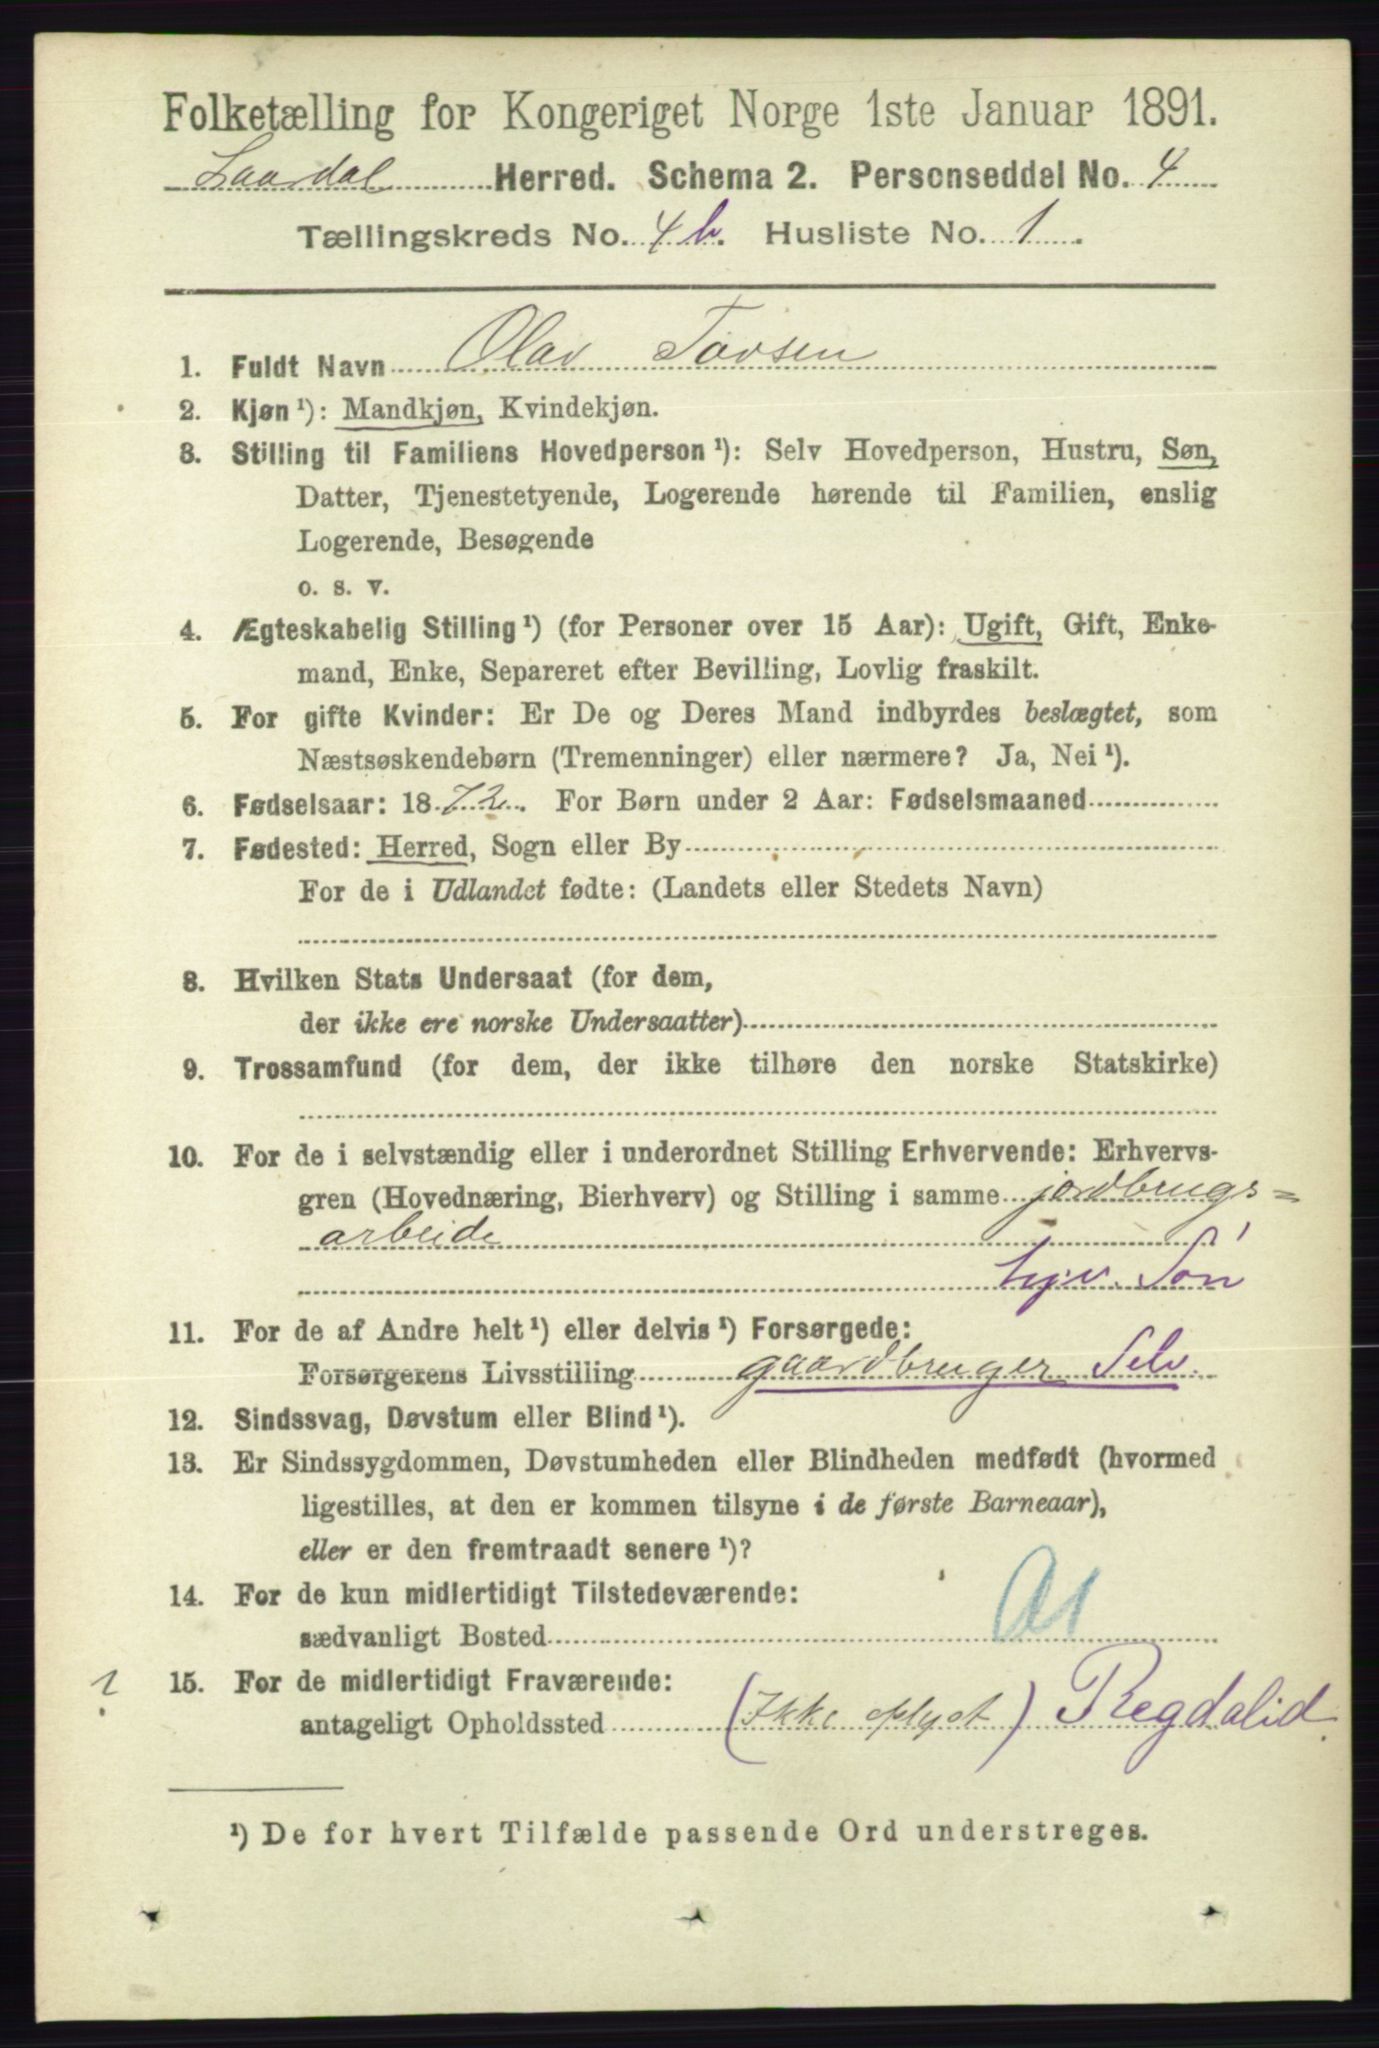 Folketælling for Kongeriget Norge 1ste Januar 1891.
Laardal Herred. Schema 2. Personseddel No. 4
Tællingskreds No. 4 b. Husliste No. 1.
1. Fuldt Navn Olav Tovsen
2. Kjøn ¹): Mandkjøn, Kvindekjøn.
3. Stilling til Familiens Hovedperson ¹): Selv Hovedperson, Hustru, Søn,
Datter, Tjenestetyende, Logerende hørende til Familien, enslig
Logerende, Besøgende
o. s. v.
4. Ægteskabelig Stilling ¹) (for Personer over 15 Aar): Ugift, Gift, Enke-
mand, Enke, Separeret efter Bevilling, Lovlig fraskilt.
5. For gifte Kvinder: Er De og Deres Mand indbyrdes beslægtet, som
Næstsøskendebørn (Tremenninger) eller nærmere? Ja, Nei ¹).
6. Fødselsaar: 1872. For Børn under 2 Aar: Fødselsmaaned
7. Fødested: Herred, Sogn eller By
For de i Udlandet fødte: (Landets eller Stedets Navn)
8. Hvilken Stats Undersaat (for dem,
der ikke ere norske Undersaatter)
9. Trossamfund (for dem, der ikke tilhøre den norske Statskirke)
10. For de i selvstændig eller i underordnet Stilling Erhvervende: Erhvervs-
gren (Hovednæring, Bierhverv) og Stilling i samme jordbrugs=
arbeide
Søn
11. For de af Andre helt ¹) eller delvis ¹) Forsørgede:
Forsørgerens Livsstilling gaardbruger Selv.
12. Sindssvag, Døvstum eller Blind ¹).
13. Er Sindssygdommen, Døvstumheden eller Blindheden medfødt (hvormed
ligestilles, at den er kommen tilsyne i de første Barneaar),
eller er den fremtraadt senere ¹)?
14. For de kun midlertidigt Tilstedeværende:
sædvanligt Bosted
15. For de midlertidigt Fraværende:
antageligt Opholdssted (Ikke oplyst) Regdalid
¹) De for hvert Tilfælde passende Ord understreges.